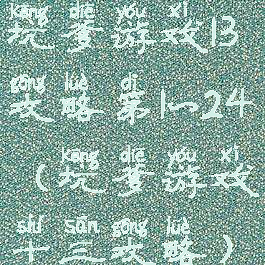 kēng diē yóu xì
坑爹游戏13
gōng lüè dì
攻略第1一24
kēng diē yóu xì
（坑爹游戏
shí sān gōng lüè
十三攻略）